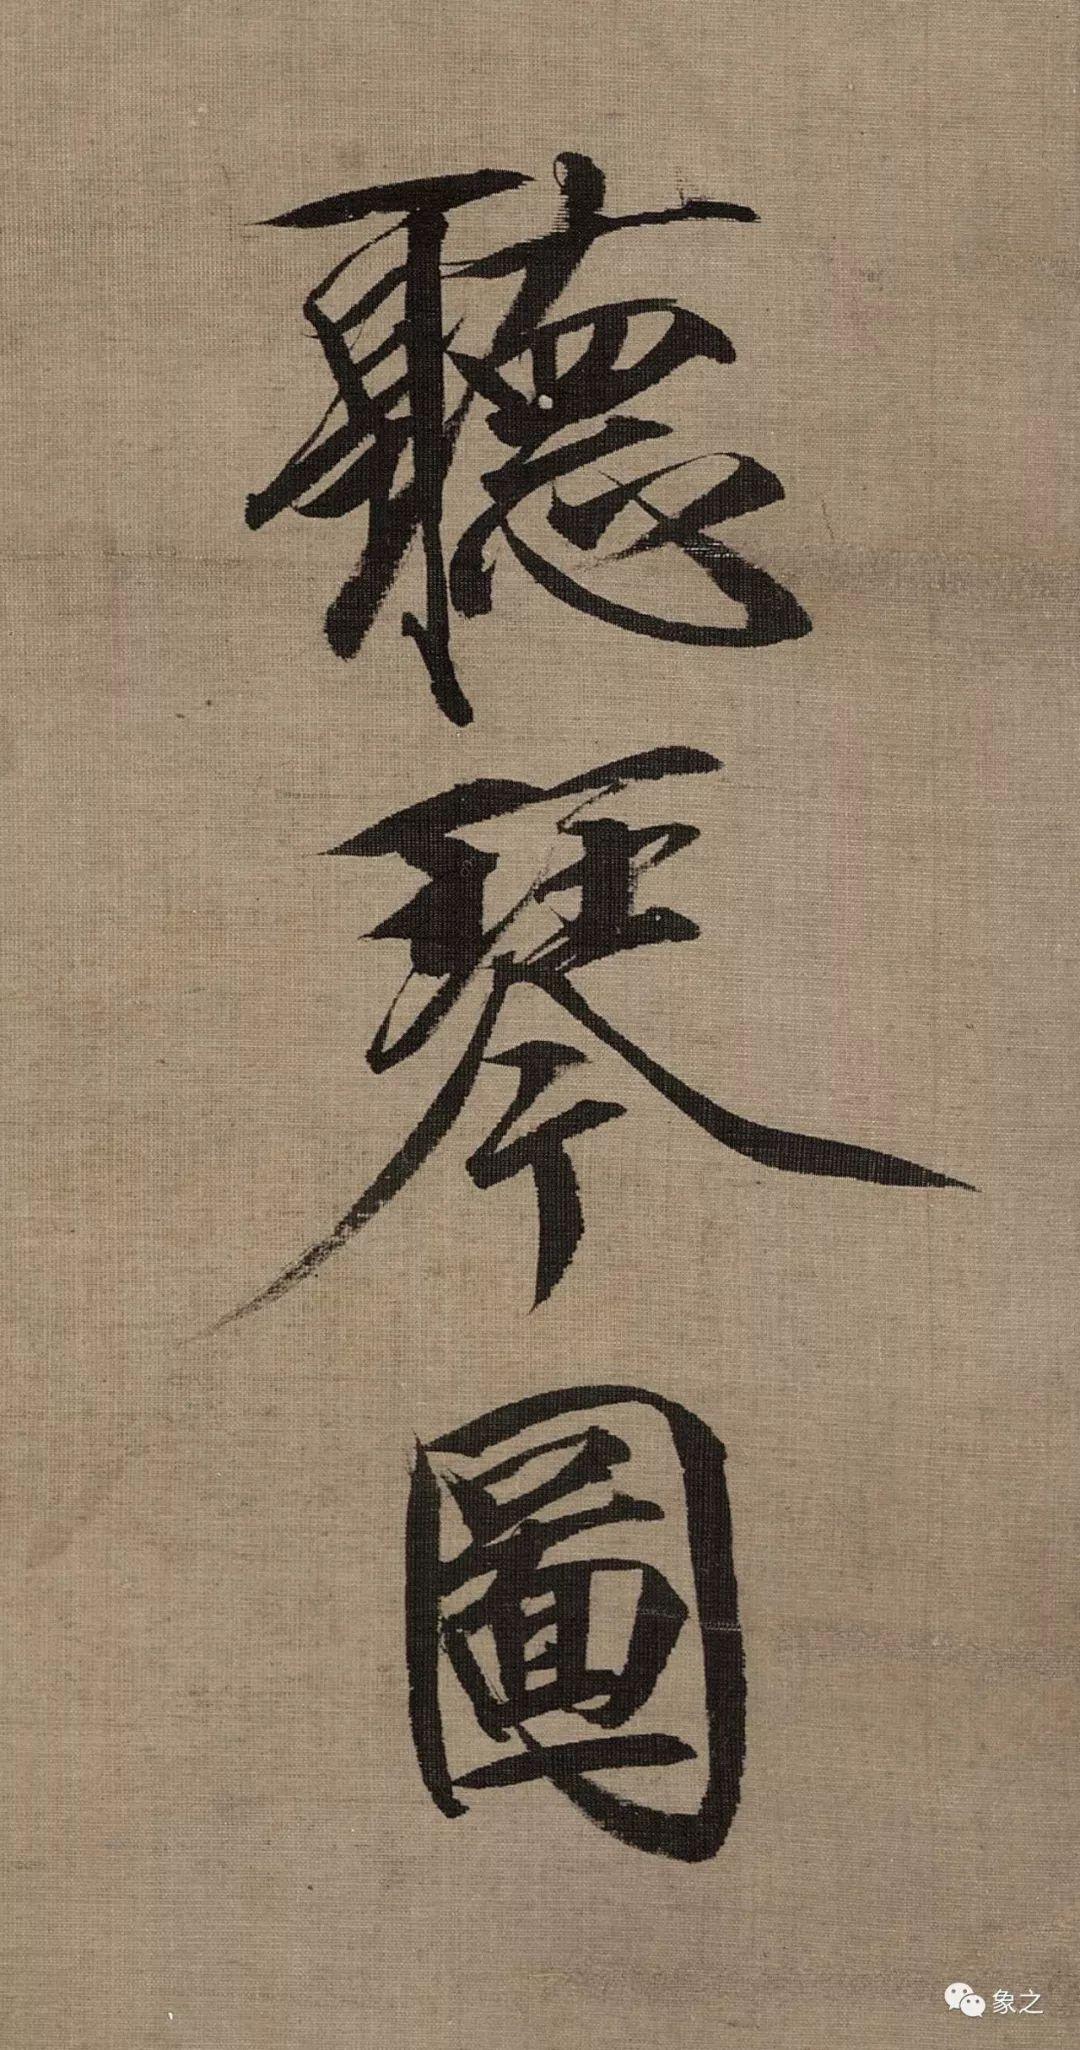 聽琴圖
象之